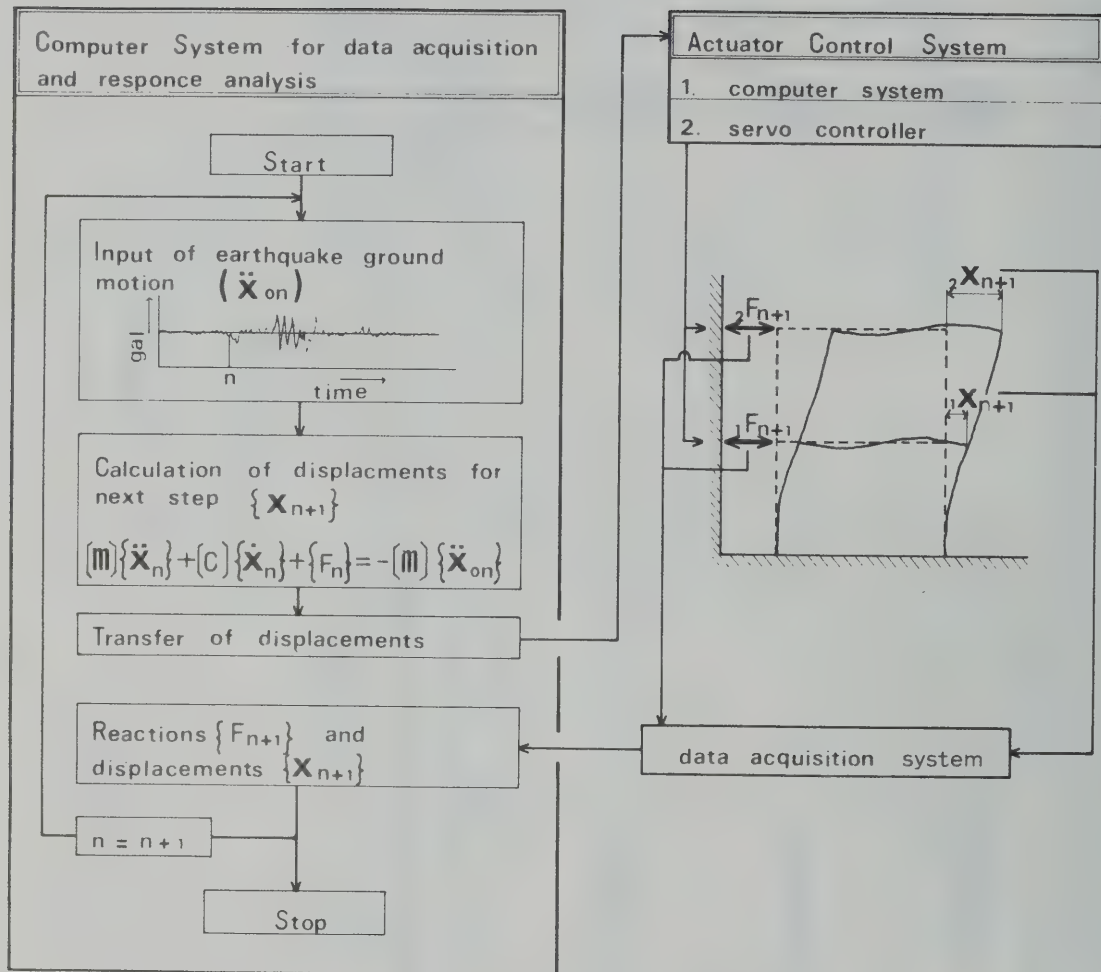 Computer System for data acquisition
and responce analysis
Start
Input of earthquake ground
motion (ẍon)
gal
n
time
Calculation of displacments for
next step {xn+1}
[m]{ẍn}+[C]{ẋn}+{Fn}=-[m]{ẍon}
Transfer of displacements
Reactions {Fn+1} and
displacements {xn+1}
n = n+1
Stop
Actuator Control System
1. computer system
2. servo controller
2Xn+1
2Fn+1
1Xn+1
1Fn+1
data acquisition system